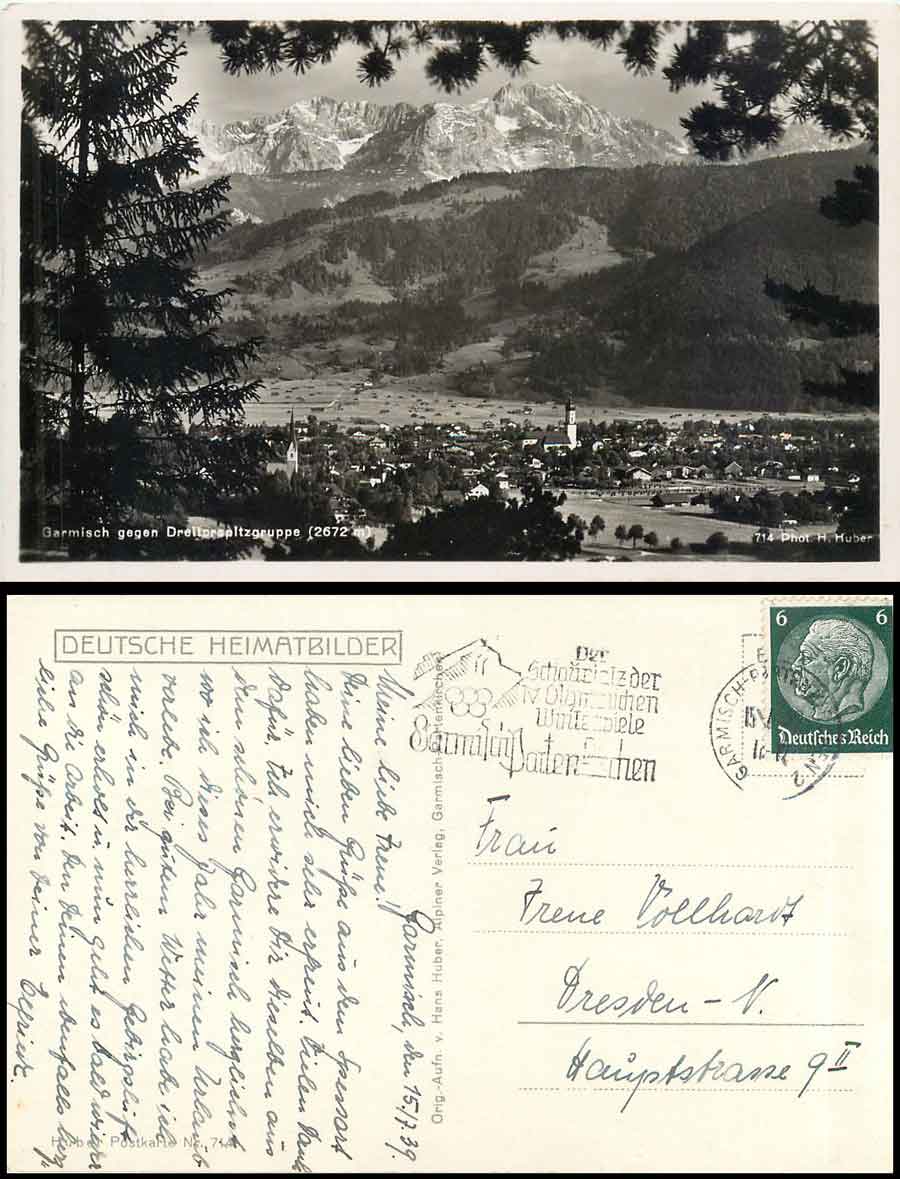 Garmisch gegen Dreitorspitzgruppe (2672 m)
714 Phot. H. Huber
DEUTSCHE HEIMATBILDER
Garmisch, den 15./7.39.
Meine liebe Irene!
Deine lieben Grüße aus dem Spessart
haben mich sehr erfreut. Vielen Dank
dafür. Ich erwidere Dir dieselben aus
dem schönen Garmisch herzlichst
wo ich dieses Jahr meinen Urlaub
verlebe. Bei gutem Wetter habe ich
mich in der herrlichen Gebirgsluft
schön erholt u. nun geht es bald wieder
an die Arbeit. Den Deinen ebenfalls herz-
liche Grüße von Deiner
Huber Postkarte Nr. 714
Orig.-Aufn. v. Hans Huber, Alpiner Verlag, Garmisch-Partenkirchen
Der
Schauplatz der
IV. Olympischen
Winterspiele
Garmisch Partenkirchen
GARMISCH-PARTENKIRCHEN 2
6 6
Deutsches Reich
Frau
Irene Vollhardt
Dresden-N.
Hauptstrasse 9 II